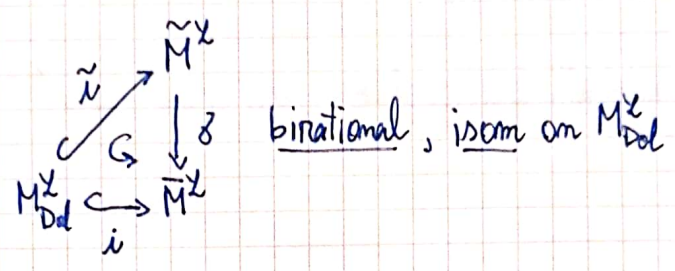 M̃^χ
ĩ
γ birational, isom on M_Dol^χ
M_Dol^χ M̄^χ
i